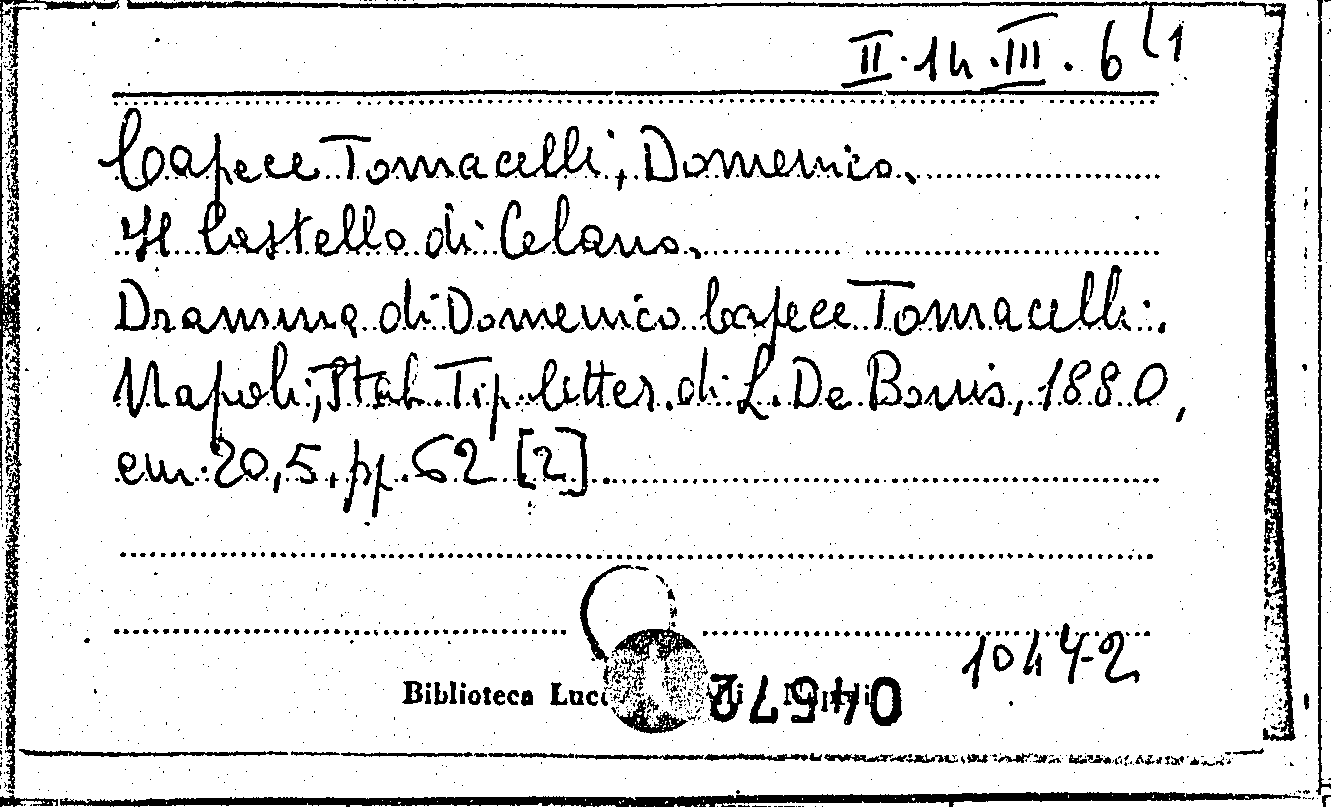 II.14.III.6(1
Capece Tomacelli, Domenico.
Il Castello di Celano.
Dramma di Domenico Capece Tomacelli.
Napoli, Stab. Tip. letter. di L. De Bonis, 1880,
cm. 20,5, pp. 62 [2].
10442
Biblioteca
04572